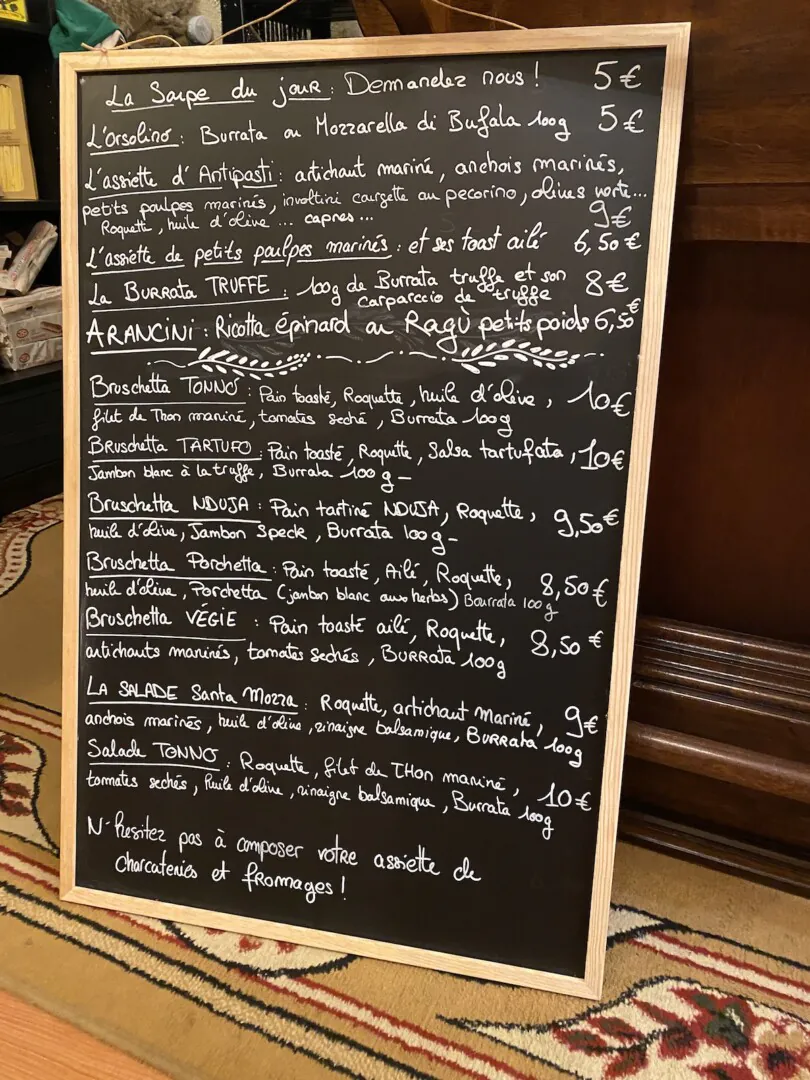 La Soupe du jour : Demandez nous ! 5€
L'orsolino : Burrata ou Mozzarella di Bufala 100g 5€
L'assiette d'Antipasti : artichaut mariné, anchois marinés,
petits poulpes marinés, involtini caurgette au pecorino, olives verte...
Roquette, huile d'olive ... capres ... 9€
L'assiette de petits poulpes marinés : et ses toast ailé 6,50€
La BURRATA TRUFFE : 100g de Burrata truffe et son 8€
carparccio de truffe
ARANCINI : Ricotta épinard ou Ragù petits poids 6,50€
Bruschetta TONNO : Pain toasté, Roquette, huile d'olive, 10€
filet de Thon mariné, tomates seché, Burrata 100g
Bruschetta TARTUFO : Pain toasté, Roquette, Salsa tartufata, 10€
Jambon blanc à la truffe, Burrata 100g-
Bruschetta NDUJA : Pain tartiné NDUJA, Roquette, 9,50€
huile d'olive, Jambon Speck, Burrata 100g-
Bruschetta Porchetta : Pain toasté, Ailé, Roquette, 8,50€
huile d'olive, Porchetta (jambon blanc aux herbs) Bourrata 100g
Bruschetta VÉGIE : Pain toasté ailé, Roquette, 8,50€
artichauts marinés, tomates sechés, BURRATA 100g
LA SALADE Santa Mozza : Roquette, artichaut mariné, 9€
anchois marinés, huile d'olive, vinaigre balsamique, BURRATA 100g
Salade TONNO : Roquette, filet de THon mariné, 10€
tommates sechés, huile d'olive, vinaigre balsamique, Burrata 100g
N'hesitez pas à composer votre assiette de
charcuteries et fromages !